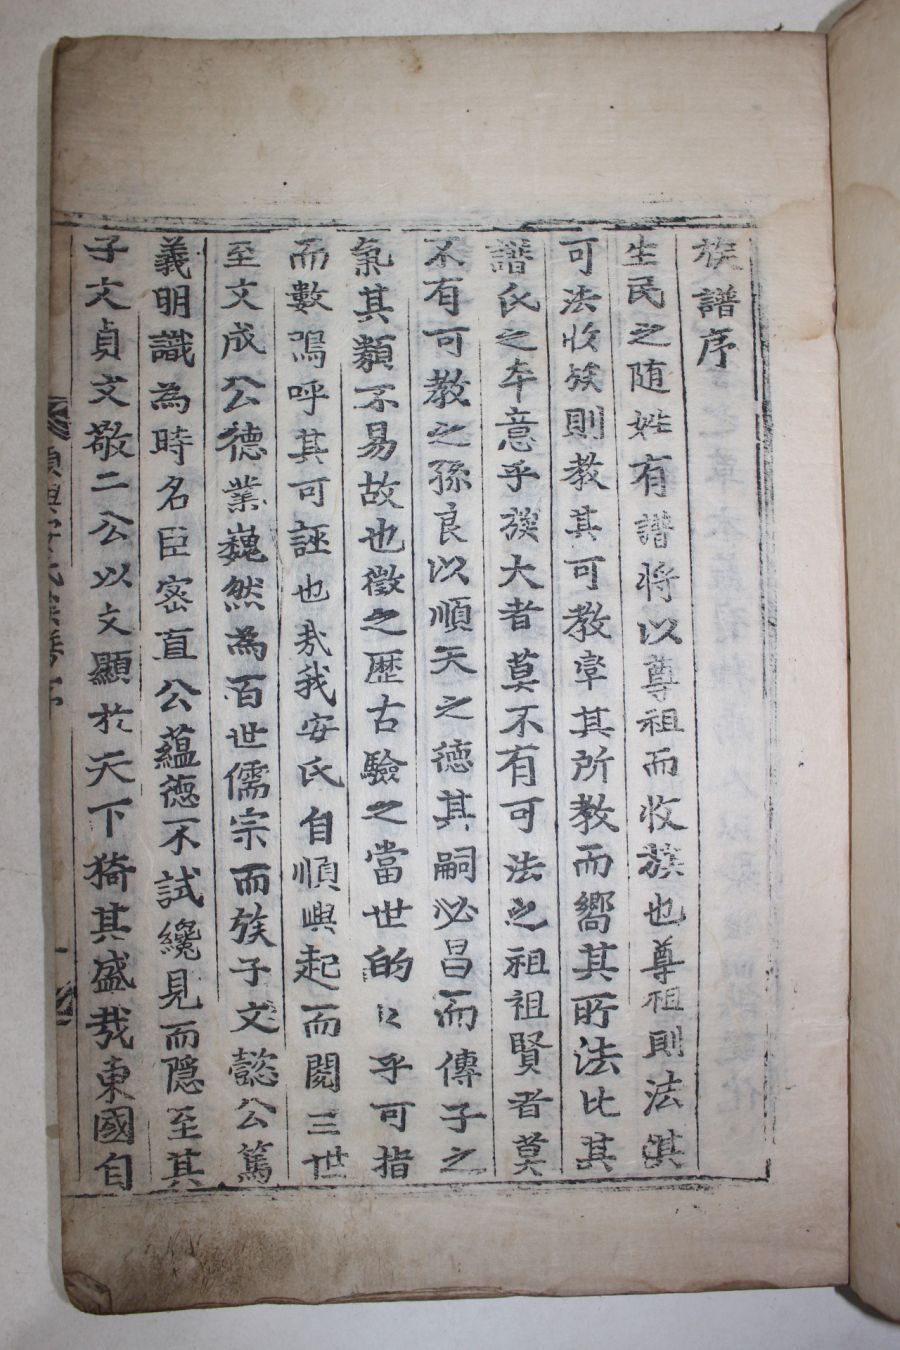 族譜序
生民之随姓有譜将以尊祖而收蔟也尊祖則法淇
可法收矦則教其可教章其所教而嚮其所法比其
譜氏之夲意乎蔟大者莫不有可法之祖祖賢者莫
不有可教之孫良以順天之德其嗣必昌而傳子之
氣其類不易故也徵之歴古驗之當世的々乎可指
而數鳴呼其可誣也㢤我安氏自順興起而閱三世
至文成公德業巍然為百世儒宗而族子文懿公篤
義明識為時名臣密直公蘊德不試纔見而隱至其
子文貞文敬二公以文顯於天下猗其盛㢤東國自
順興安氏族譜序
一